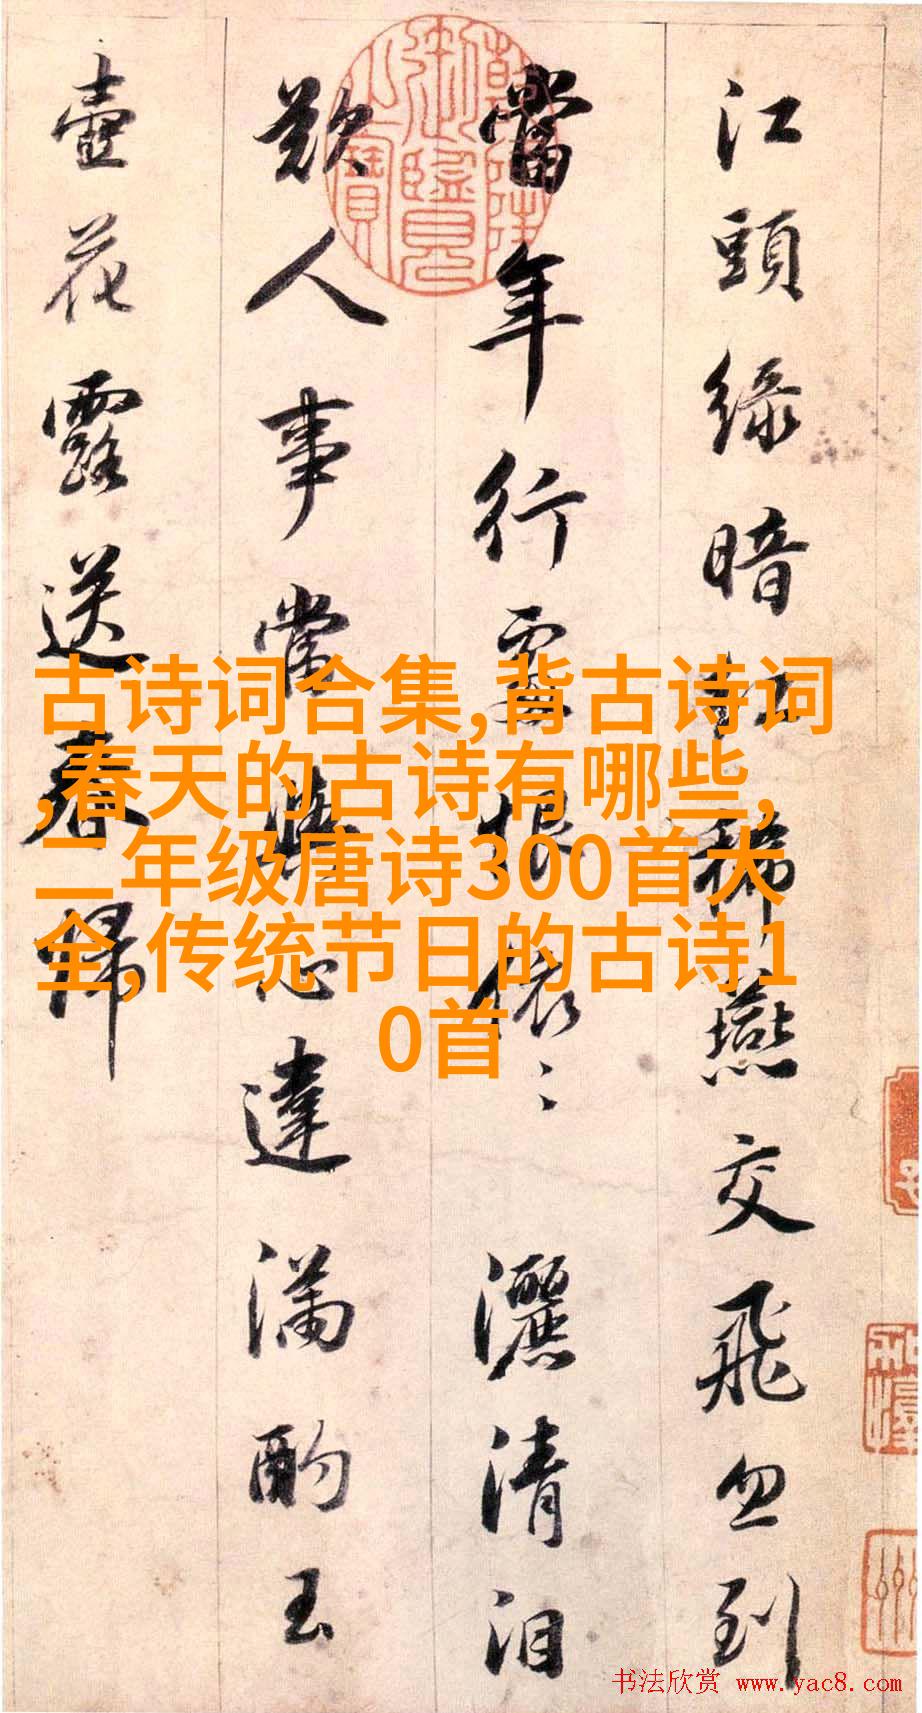 江頭綠暗紅稀燕交飛忽到
當年行處恨依〻 灑清泪
歎人事常心違滿酌玉
壺花露送春歸
乾隆御覽之寶
古诗词合集,背古诗词
,春天的古诗有哪些,
二年级唐诗300首大
全,传统节日的古诗1
0首
书法欣赏 www.yac8.com